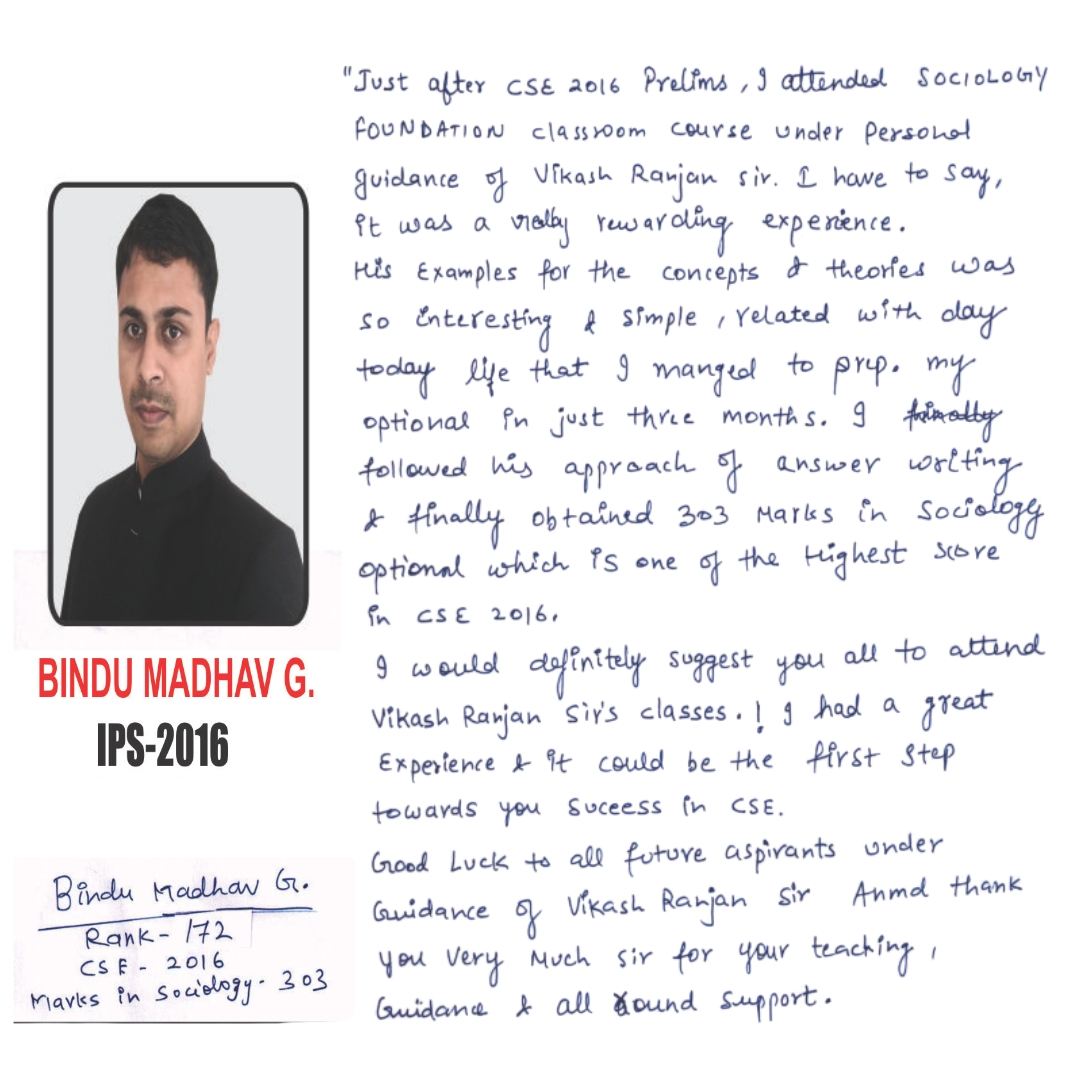 "Just after CSE 2016 Prelims, I attended SOCIOLOGY
FOUNDATION classroom course under Personal
guidance of Vikash Ranjan sir. I have to say,
it was a really rewarding experience.
His Examples for the concepts & theories was
so interesting & simple, related with day
today life that I manged to prep. my
optional in just three months. I finally
followed his approach of answer writing
& finally obtained 303 Marks in Sociology
optional which is one of the Highest score
in CSE 2016.
I would definitely suggest you all to attend
Vikash Ranjan Sir's classes. ! I had a great
Experience & it could be the first step
towards you Suceess in CSE.
Good Luck to all future aspirants under
Guidance of Vikash Ranjan Sir Anmd thank
you Very Much sir for your teaching,
Guidance & all round support.
BINDU MADHAV G.
IPS-2016
Bindu Madhav G.
Rank - 172
CSE - 2016
Marks in Sociology - 303